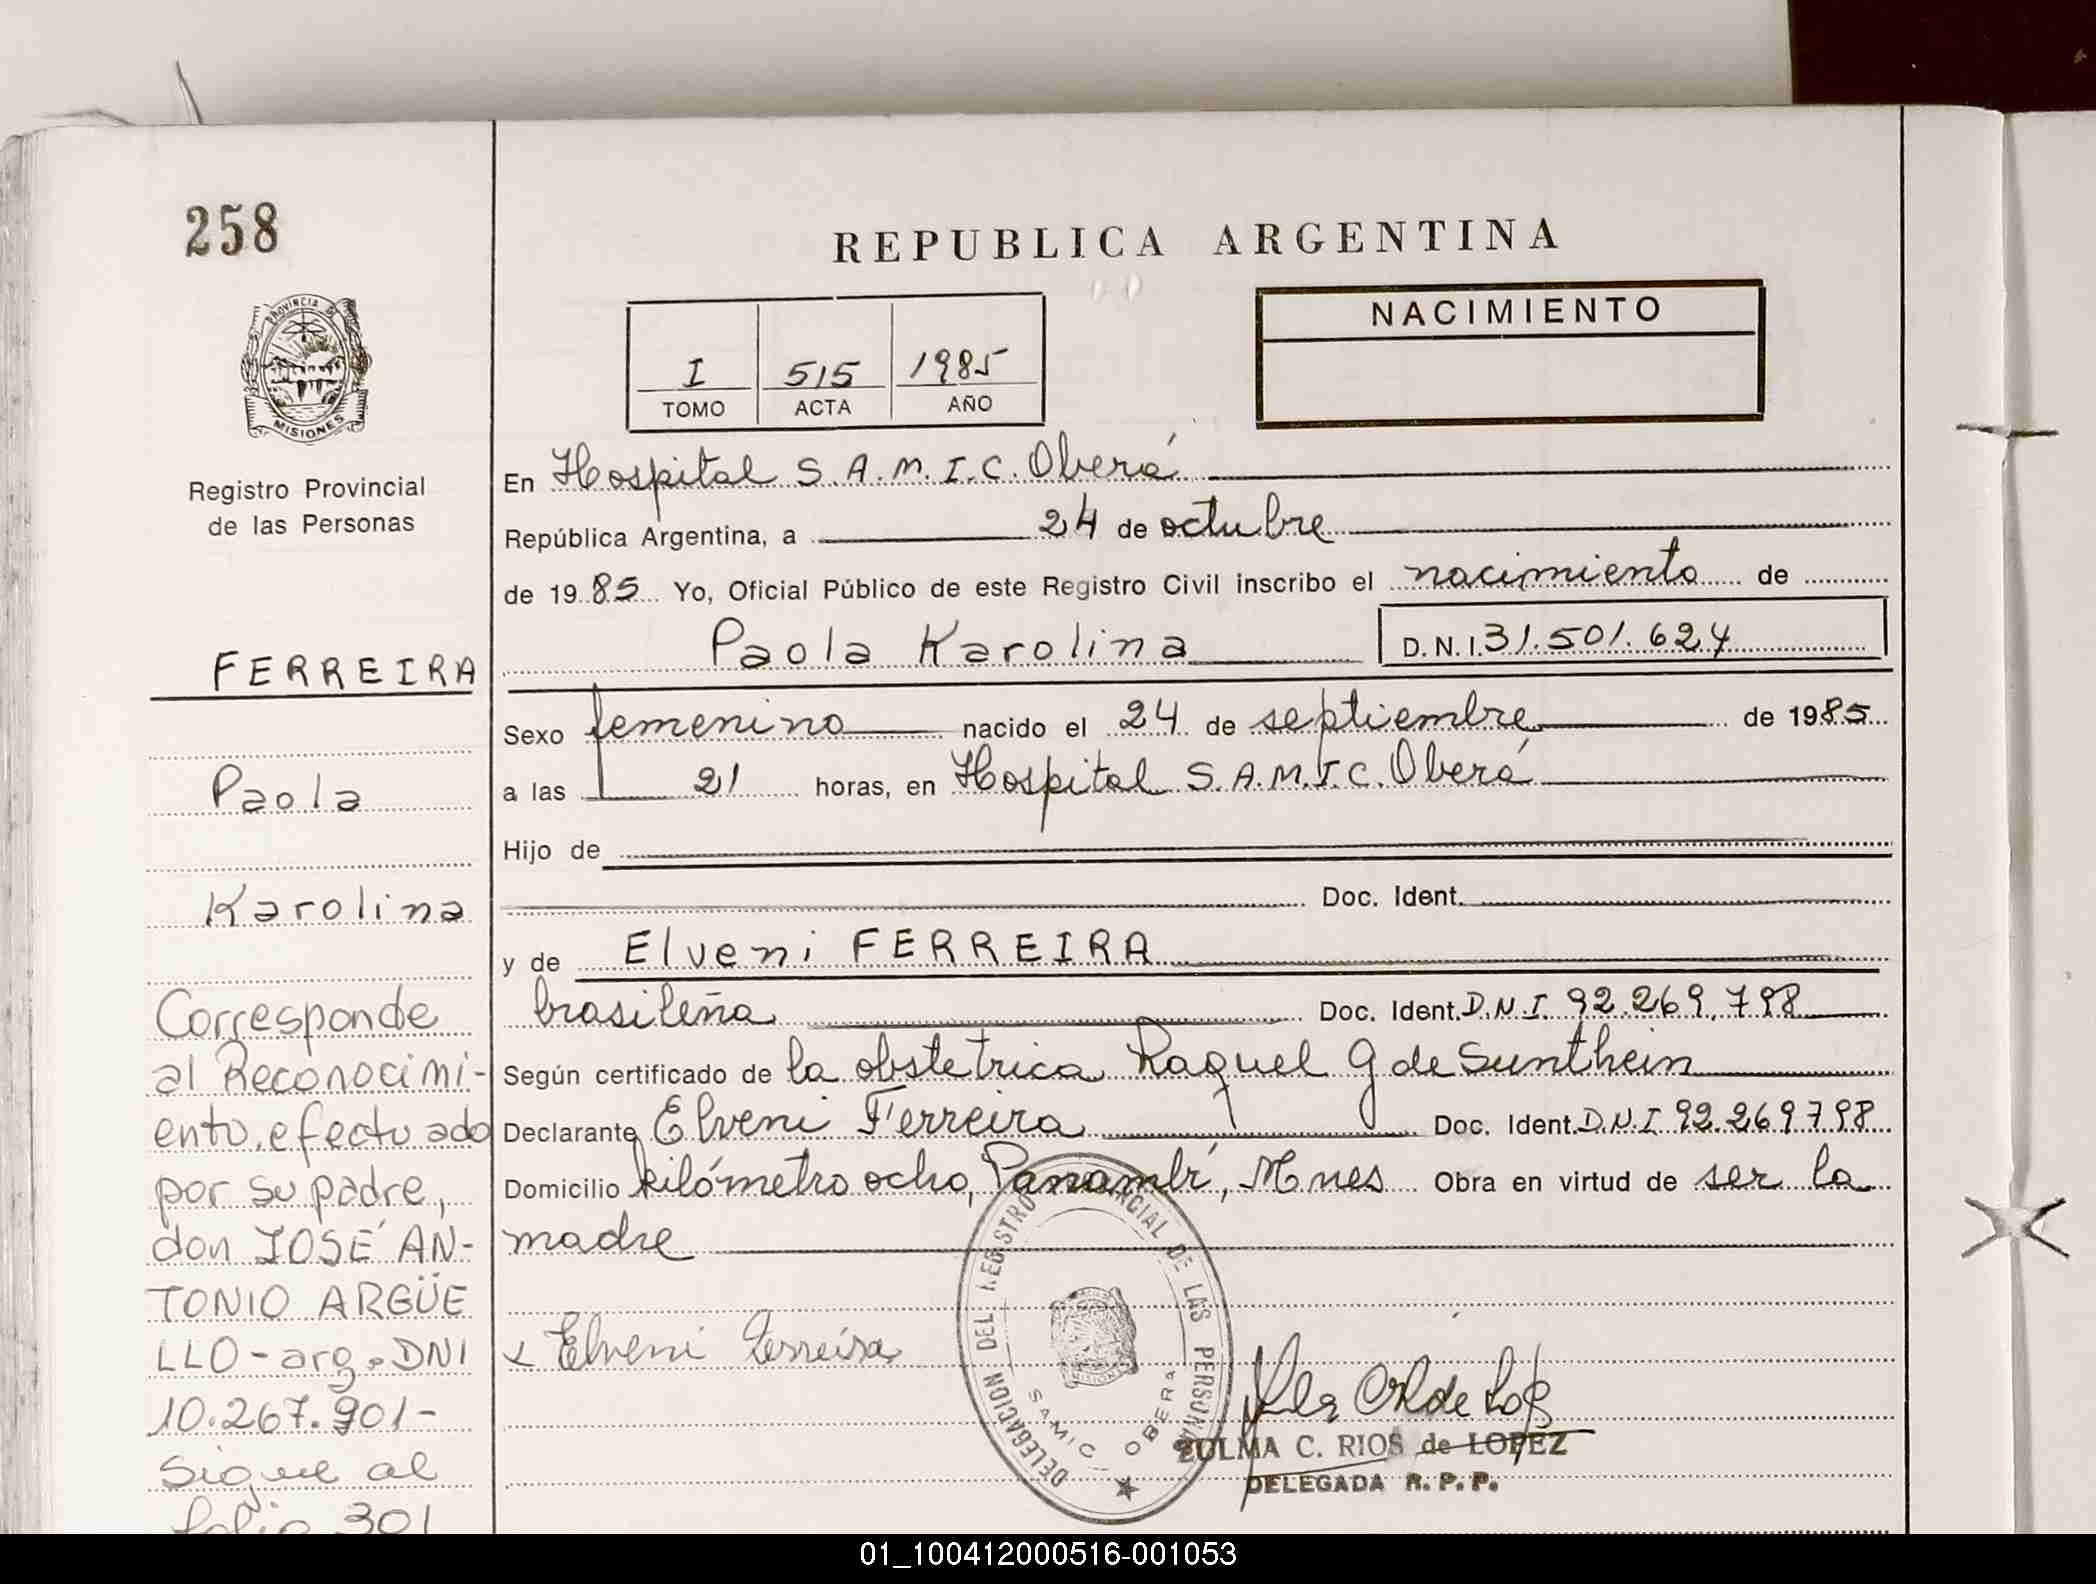 258
REPUBLICA ARGENTINA
PROVINCIA DE
MISIONES
I 515 1985
TOMO ACTA AÑO
NACIMIENTO
Registro Provincial
de las Personas
En Hospital S.A.M.I.C. Oberá
República Argentina, a 24 de octubre
de 1985 Yo, Oficial Público de este Registro Civil inscribo el nacimiento de
Paola Karolina D.N.I. 31.501.624
Sexo femenino nacido el 24 de septiembre de 1985
a las 21 horas, en Hospital S.A.M.I.C. Oberá
Hijo de
Doc. Ident.
y de Elveni FERREIRA
brasileña Doc. Ident. D.N.I. 92.269.798
Según certificado de la obstetrica Raquel G de Sunthein
Declarante Elveni Ferreira Doc. Ident. D.N.I 92.269798
Domicilio kilómetro ocho, Panambí, Mnes Obra en virtud de ser la
madre
Elveni Ferreira
DELEGACION DEL REGISTRO PROVINCIAL DE LAS PERSONAS
SAMIC OBERA
MISIONES
ZULMA C. RIOS de LOPEZ
DELEGADA R.P.P.
FERREIRA
Paola
Karolina
Corresponde
al Reconocimi-
ento, efectuado
por su padre,
don JOSÉ AN-
TONIO ARGÜE
LLO - arg. DNI
10.267.901-
Sigue al
folio 301
01_100412000516-001053